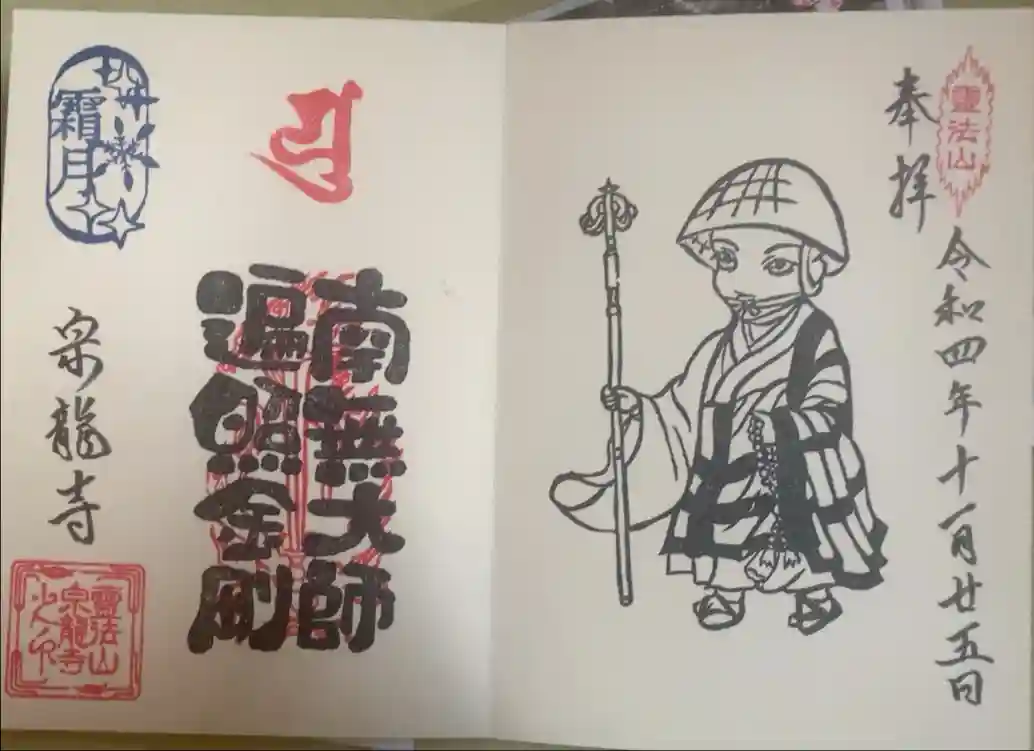 靈法山
奉拝
令和四年十一月廿五日
南無大師
遍照金剛
霜月
泉龍寺
靈法山
泉龍寺
之印